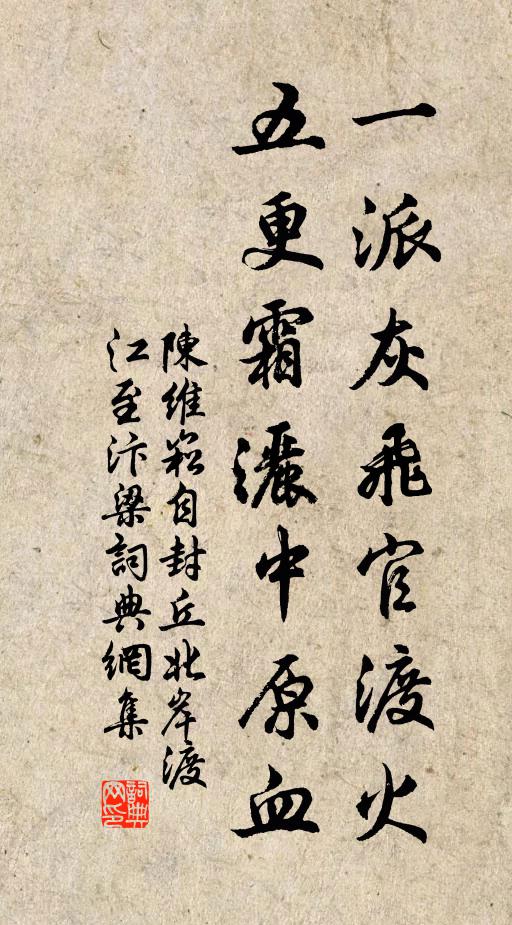 一派灰飛官渡火
五更霜灑中原血
陳維崧自封丘北岸渡
江至汴梁詞典網集
詞典
网印